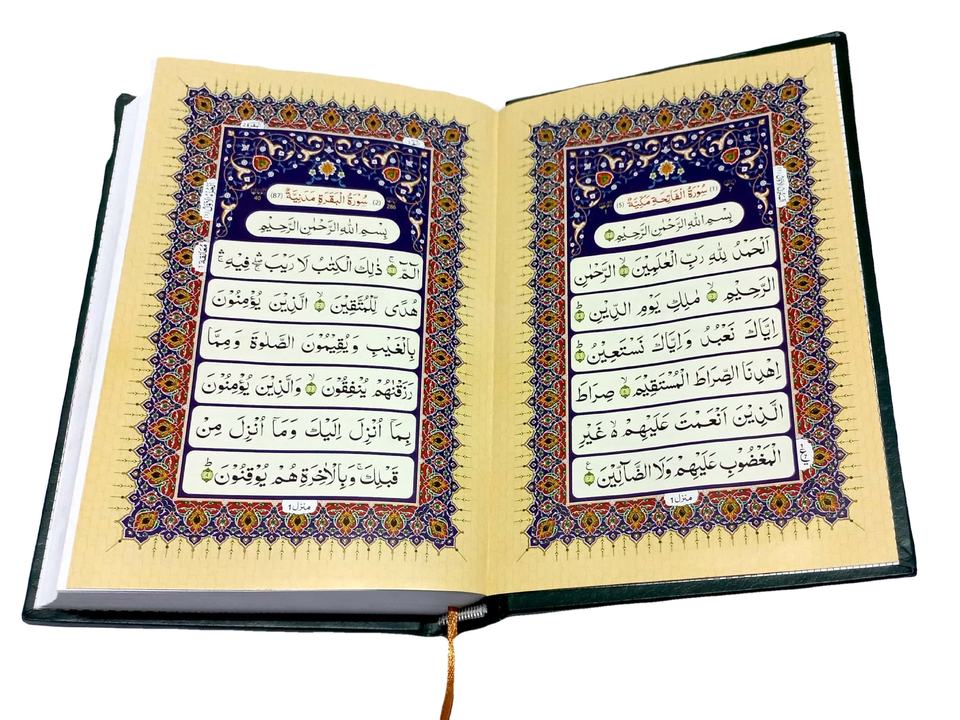 (1) سُوْرَةُ الْفَاتِحَةِ مَكِّيَّةٌ (5)
بِسْمِ اللّٰهِ الرَّحْمٰنِ الرَّحِيْمِ
اَلْحَمْدُ لِلّٰهِ رَبِّ الْعٰلَمِيْنَ الرَّحْمٰنِ
الرَّحِيْمِ مٰلِكِ يَوْمِ الدِّيْنِ
اِيَّاكَ نَعْبُدُ وَاِيَّاكَ نَسْتَعِيْنُ
اِهْدِنَا الصِّرَاطَ الْمُسْتَقِيْمَ صِرَاطَ
الَّذِيْنَ اَنْعَمْتَ عَلَيْهِمْ غَيْرِ
الْمَغْضُوْبِ عَلَيْهِمْ وَلَا الضَّآلِّيْنَ
منزل ١
(2) سُوْرَةُ الْبَقَرَةِ مَدَنِيَّةٌ (87)
بِسْمِ اللّٰهِ الرَّحْمٰنِ الرَّحِيْمِ
الٓمّٓ ذٰلِكَ الْكِتٰبُ لَا رَيْبَ فِيْهِ
هُدًى لِّلْمُتَّقِيْنَ الَّذِيْنَ يُؤْمِنُوْنَ
بِالْغَيْبِ وَيُقِيْمُوْنَ الصَّلٰوةَ وَمِمَّا
رَزَقْنٰهُمْ يُنْفِقُوْنَ وَالَّذِيْنَ يُؤْمِنُوْنَ
بِمَآ اُنْزِلَ اِلَيْكَ وَمَآ اُنْزِلَ مِنْ
قَبْلِكَ وَبِالْاٰخِرَةِ هُمْ يُوْقِنُوْنَ
منزل ١